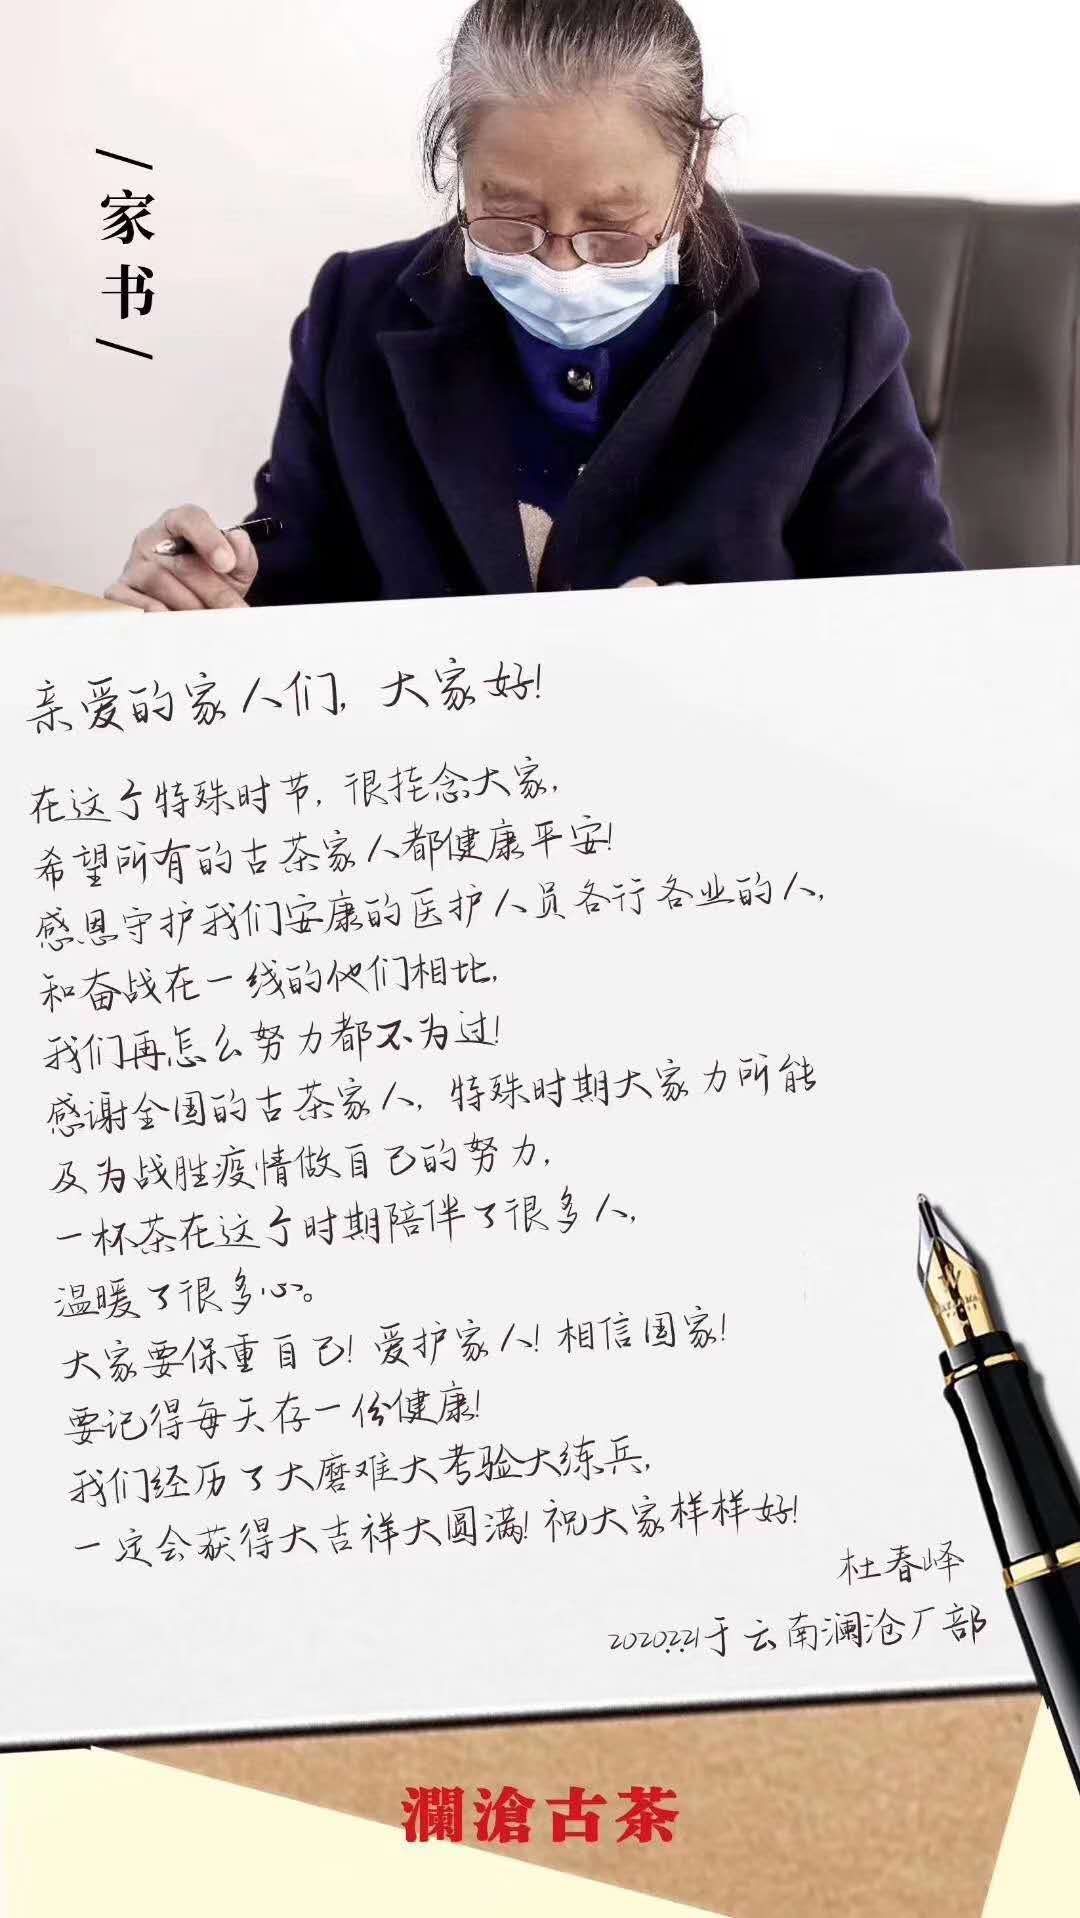 家书
亲爱的家人们，大家好！
在这个特殊时节，很挂念大家，
希望所有的古茶家人都健康平安！
感恩守护我们安康的医护人员各行各业的人，
和奋战在一线的他们相比，
我们再怎么努力都不为过！
感谢全国的古茶家人，特殊时期大家力所能
及为战胜疫情做自己的努力，
一杯茶在这个时期陪伴了很多人，
温暖了很多心。
大家要保重自己！爱护家人！相信国家！
要记得每天存一份健康！
我们经历了大磨难大考验大练兵，
一定会获得大吉祥大圆满！祝大家样样好！
杜春峄
2020.2.21于云南澜沧厂部
瀾滄古茶